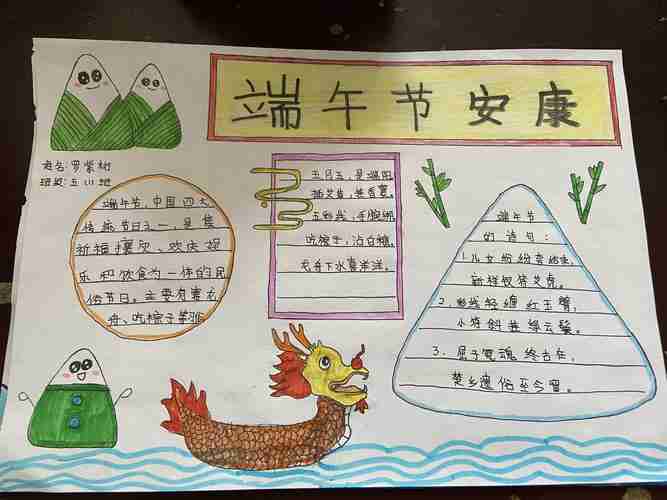 端午节安康
姓名:罗紫树
班级:五(11)班
端午节,中国四大
传统节日之一,是集
祈福攘灾、欢庆娱
乐和饮食为一体的民
俗节日。主要有赛龙
舟、吃粽子等。
五月五,是端阳。
插艾草,挂香囊。
五彩线,手腕绑。
吃粽子,沾白糖。
龙舟下水喜洋洋。
端午节
的诗句:
1.儿女纷纷夸结束,
新样钗符艾虎。
2.彩线轻缠红玉臂,
小符斜挂绿云鬟。
3.屈子冤魂终古在,
楚乡遗俗至今留。